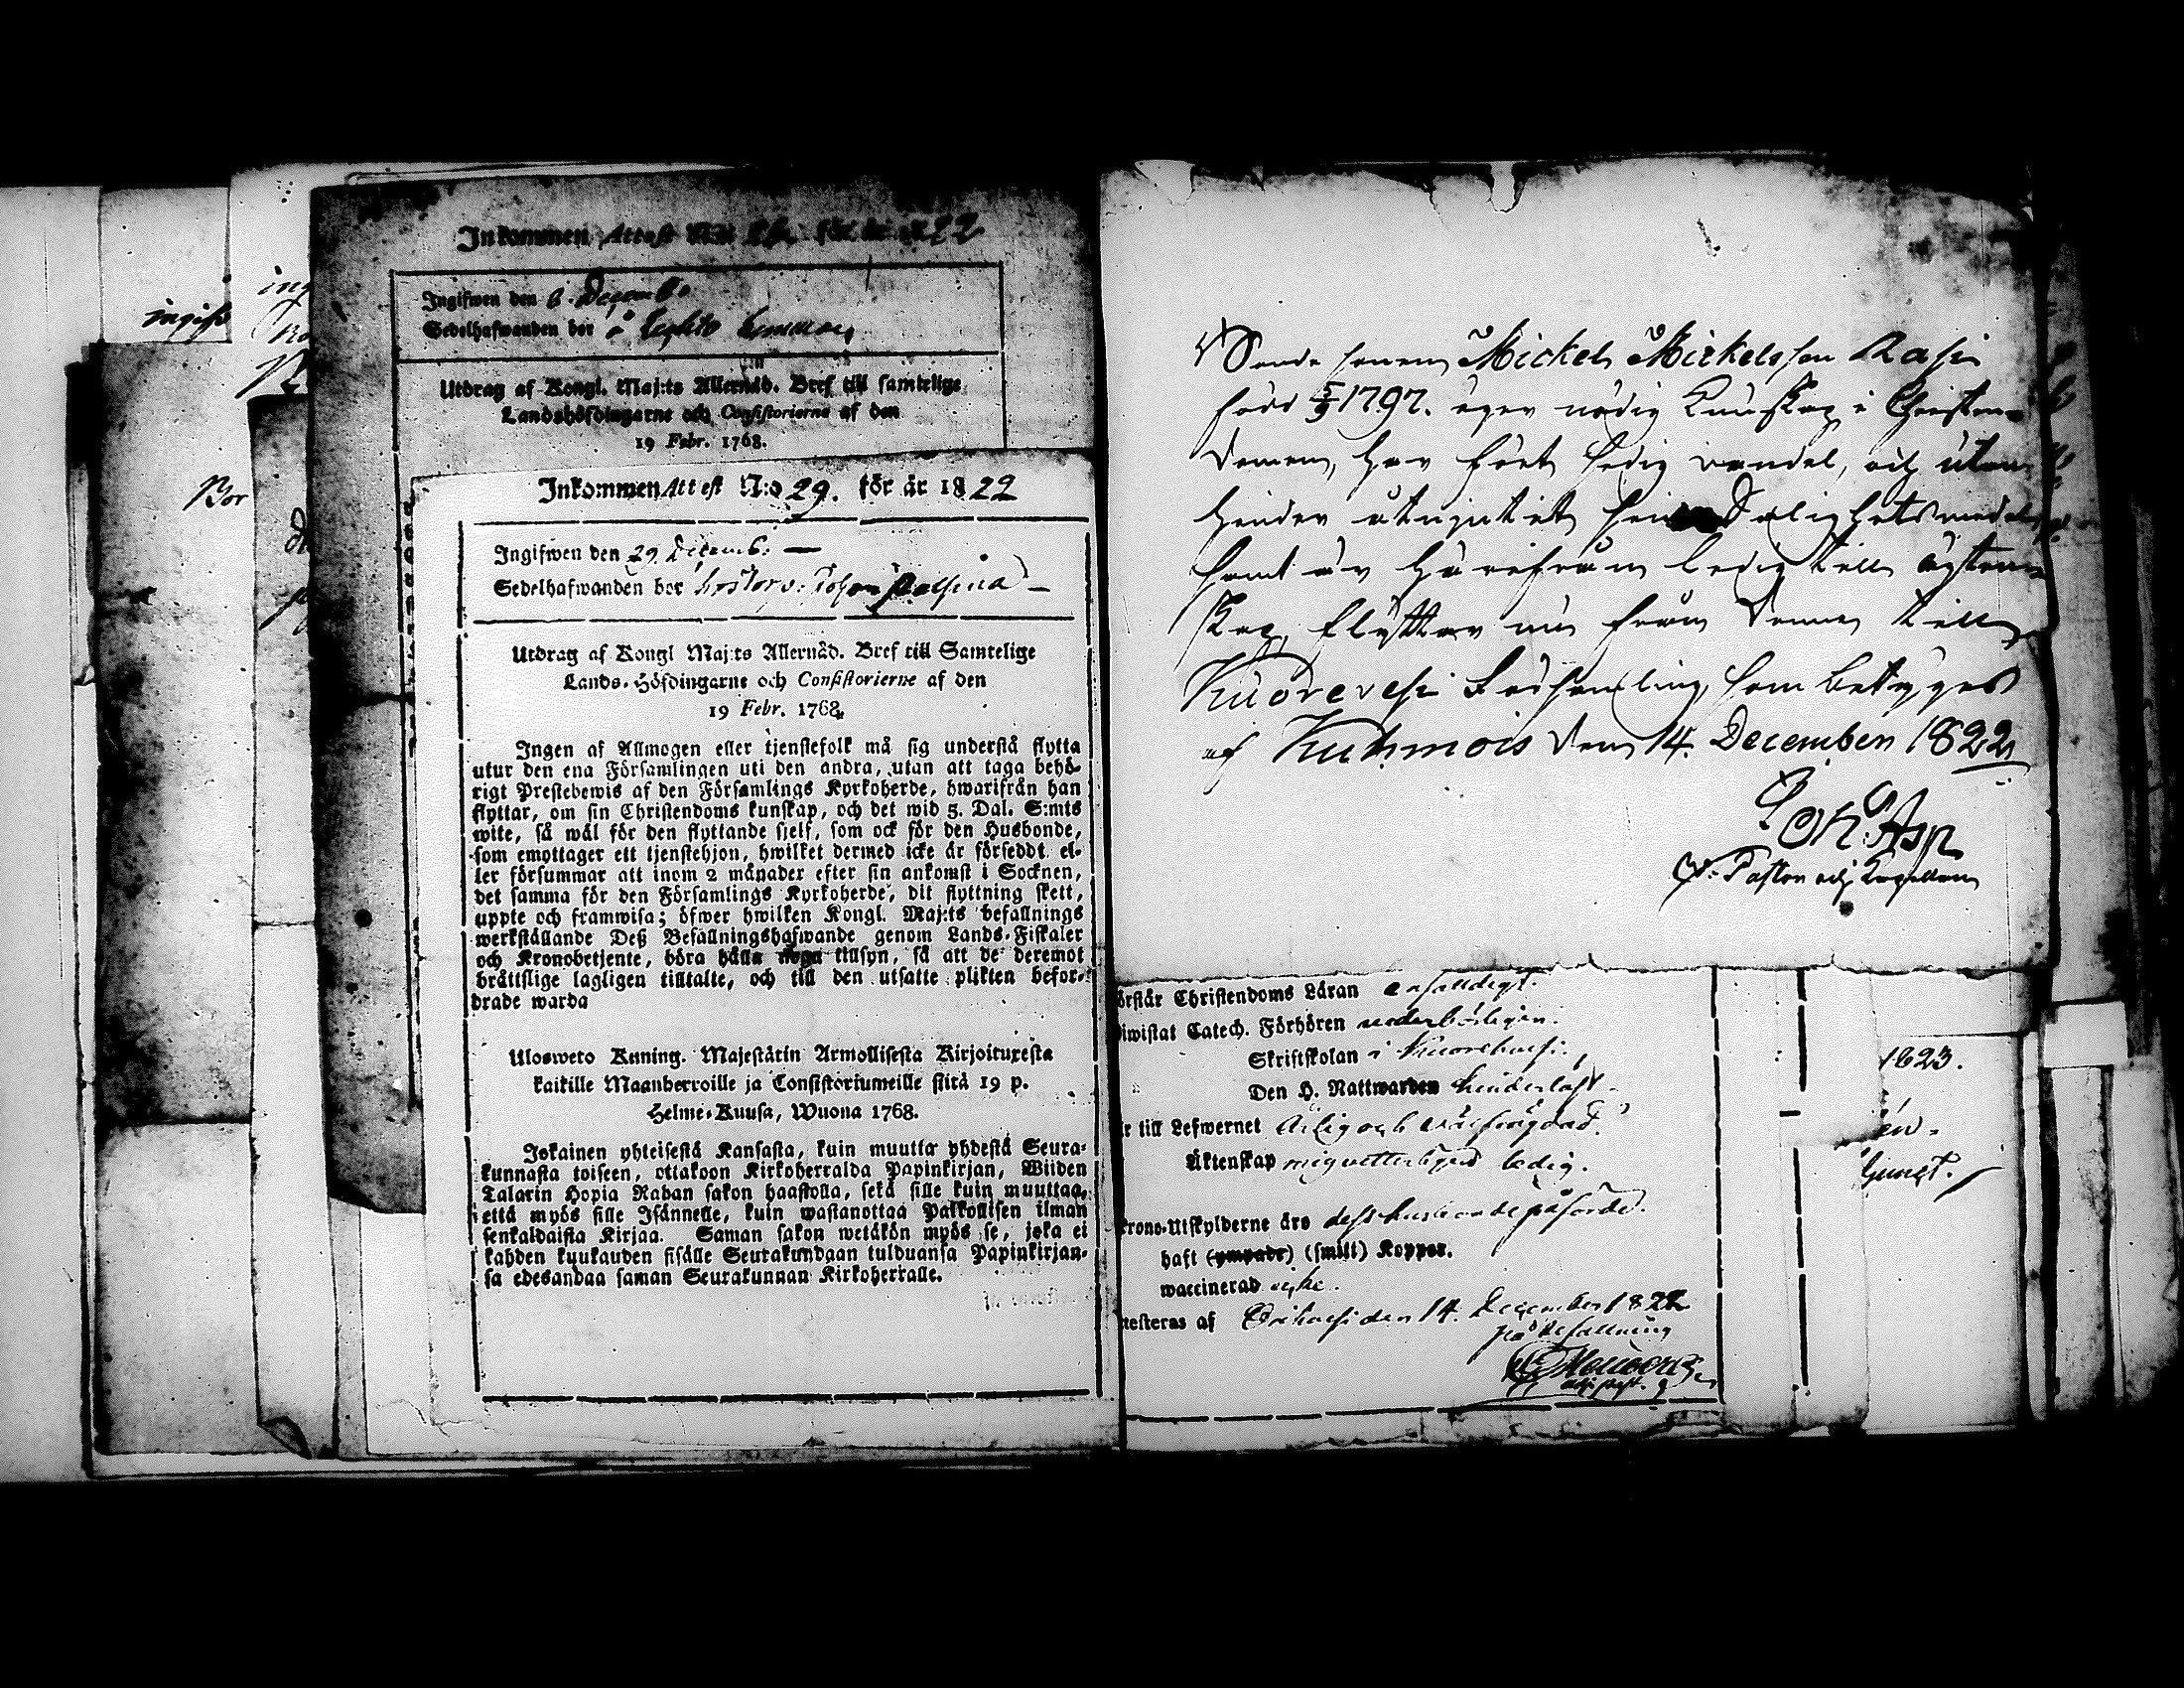 ingifv
ing
Bor
Inkommen Attest N:o för år 1822
Ingifwen den 6. Decemb.
Sedelhafwanden bor å
Utdrag af Kongl. Maj:ts Allernåd. Bref till samtelige
Landshöfdingarne och Consistorierne af den
19 Febr. 1768.
Inkommen Attest N:o 29. för år 1822
Ingifwen den 29. Decemb:
Sedelhafwanden bor
Utdrag af Kongl Maj:ts Allernåd. Bref till Samtelige
Lands-Höfdingarne och Consistorierne af den
19 Febr. 1768.
Ingen af Allmogen eller tjenstefolk må sig understå flytta
utur den ena Församlingen uti den andra, utan att taga behö-
rigt Prestebewis af den Församlings Kyrkoherde, hwarifrån han
flyttar, om sin Christendoms kunskap, och det wid 5. Dal. S:mts
wite, så wäl för den flyttande sjelf, som ock för den Husbonde,
som emottager ett tjenstehjon, hwilket dermed icke är förseddt el-
ler försummar att inom 2 månader efter sin ankomst i Socknen,
det samma för den Församlings Kyrkoherde, dit flyttning skett,
uppte och framwisa; öfwer hwilken Kongl. Maj:ts befallnings
werkställande Deß Befallningshafwande genom Lands-Fiskaler
och Kronobetjente, böra hålla noga tillsyn, så att de deremot
bråttslige lagligen tilltalte, och till den utsatte plikten befor-
drade warda
Ulosweto Kuning. Majestätin Armollisesta Kirjoituxesta
kaikille Maanherroille ja Consistoriumeille siitä 19 p.
Helme-Kuusa, Wuona 1768.
Jokainen yhteisestä Kansasta, kuin muutta yhdestä Seura-
kunnasta toiseen, ottakoon Kirkoherralda Papinkirjan, Wiiden
Talarin Hopia Rahan sakon haastolla, sekä sille kuin muuttaa,
että myös sille Isännelle, kuin wastanottaa Palkollisen ilman
senkaldaista Kirjaa. Saman sakon wetäkön myös se, joka ei
kahden kuukauden sisälle Seurakundaan tulduansa Papinkirjan-
sa edesandaa saman Seurakunnan Kirkoherralle.
Bonde sonen Mickel Mickelsson Rasi
född 5/9 1797. äger nödig Kunskap i Christen-
domen, har fört sedig vandel, och utan
hinder utnjutit sine Salighetsmedel
samt är härifrån ledig till ägten-
skap, flyttar nu från denne till
Kuorevesi Församling, som betygas
af Kuhmois den 14. December 1822
Joh: Asp
V. Pastor och Kapellan
örstår Christendoms Läran enfalldigt.
iwistat Catech. Förhören vederbörligen.
Skriftskolan i Kuorehvesi.
Den H. Nattwarden hinderlöst
r till Lefwernet ärlig och
Äktenskap mig vetterligen ledig.
krono-Utskylderne äro dess husbonde påförde.
haft (ympade) (smitt) Koppor.
waccinerad icke.
ttesteras af Orihvesi den 14. December 1822
på befallning
adj. past.
1823.